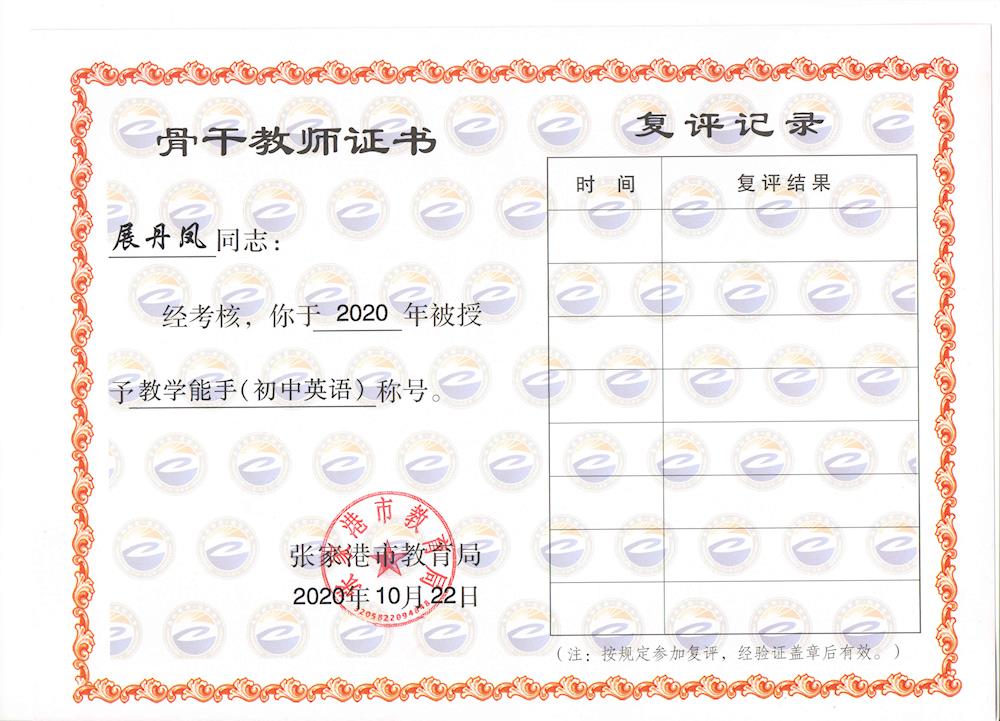 骨干教师证书
展丹凤同志：
经考核，你于 2020 年被授
予教学能手(初中英语)称号。
张家港市教育局
张家港市教育局
2020年10月22日
复评记录
时 间 复评结果
（注：按规定参加复评，经验证盖章后有效。）